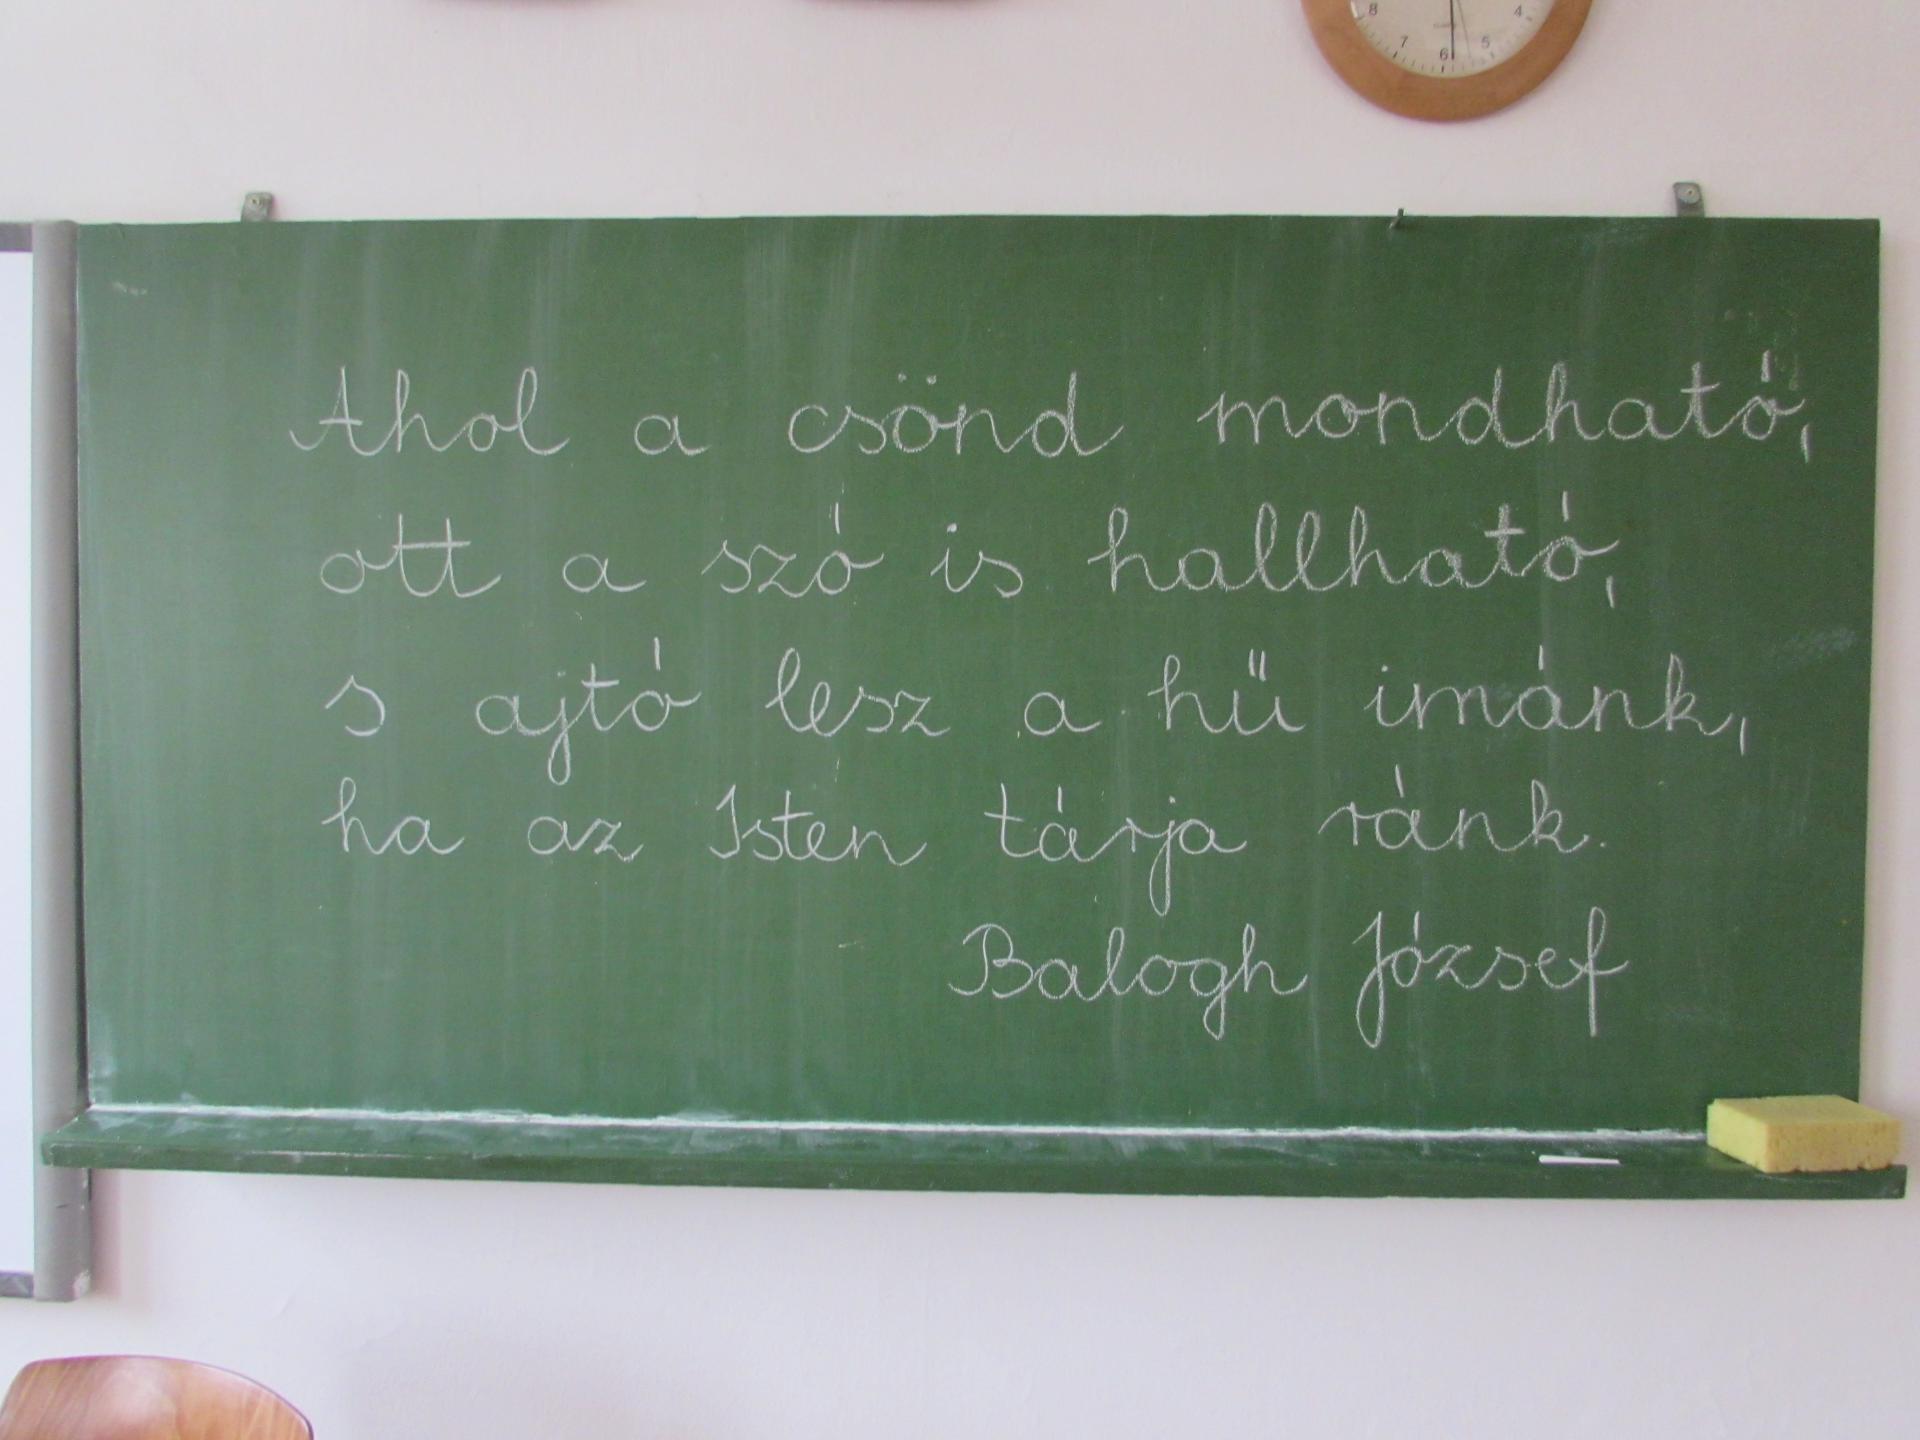 8 7 6 5 4
Ahol a csönd mondható,
ott a szó is hallható,
s ajtó lesz a hű imánk,
ha az Isten tárja ránk.
Balogh József